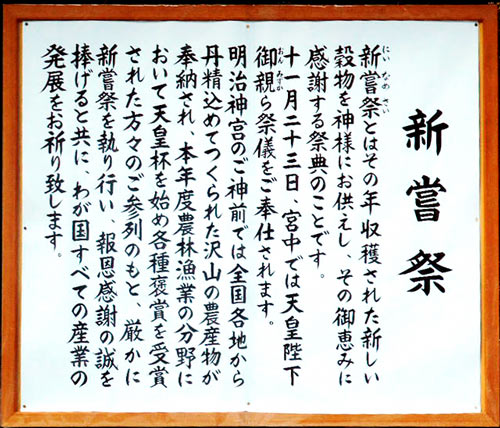 新嘗祭
新嘗祭とはその年収穫された新しい
穀物を神様にお供えし、その御恵みに
感謝する祭典のことです。
十一月二十三日、宮中では天皇陛下
御親ら祭儀をご奉仕されます。
明治神宮のご神前では全国各地から
丹精込めてつくられた沢山の農産物が
奉納され、本年度農林漁業の分野に
おいて天皇杯を始め各種褒賞を受賞
された方々のご参列のもと、厳かに
新嘗祭を執り行い、報恩感謝の誠を
捧げると共に、わが国すべての産業の
発展をお祈り致します。